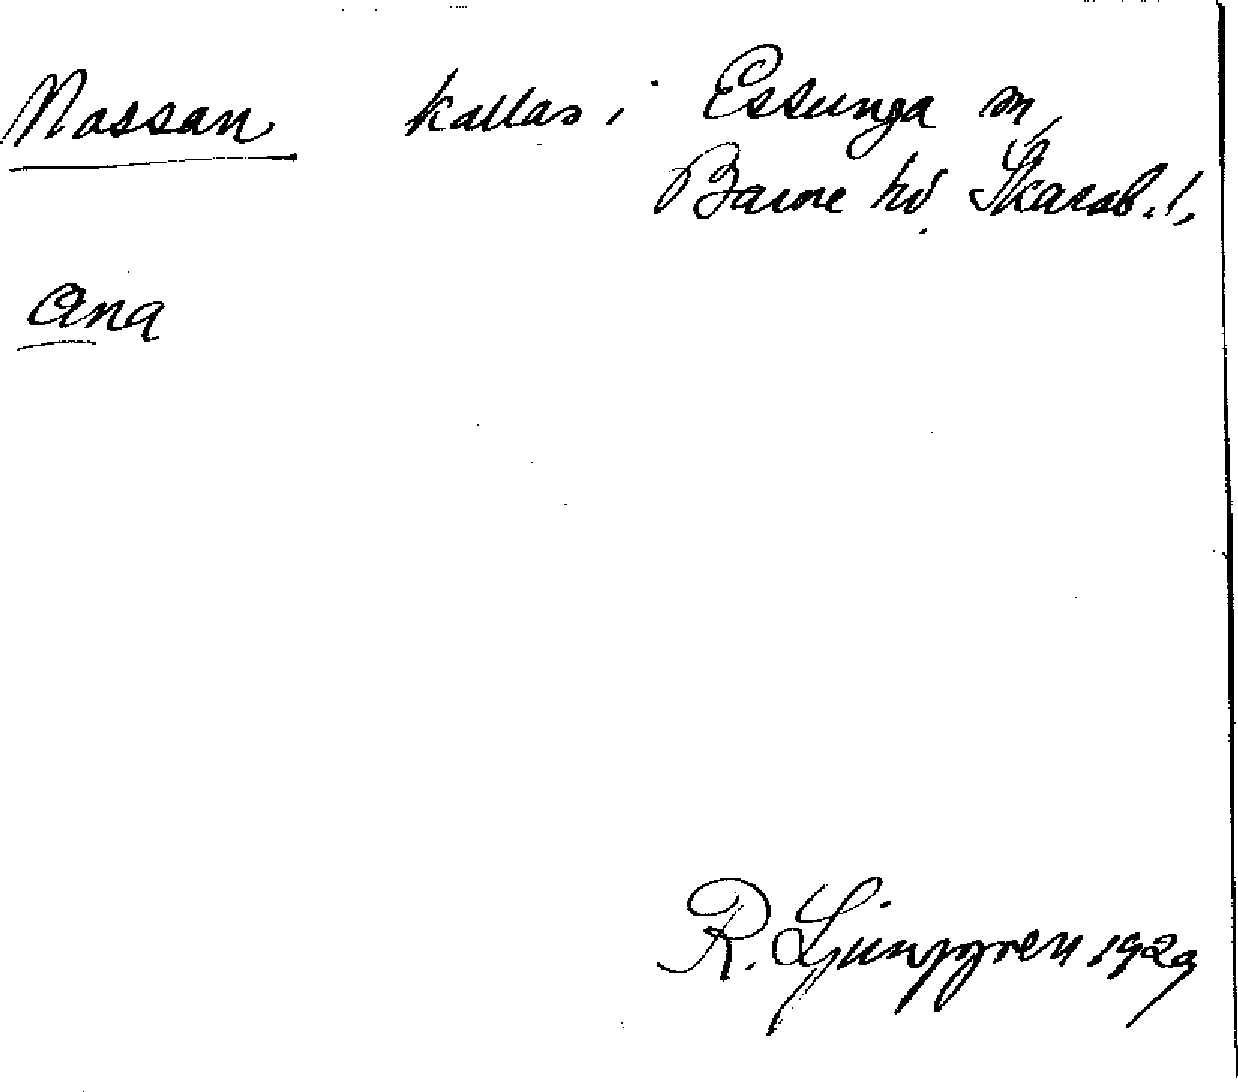 Nossan kallas i Essunga sn,
Barne hd. Skarab. l.
Ana
R. Ljunggren 1929